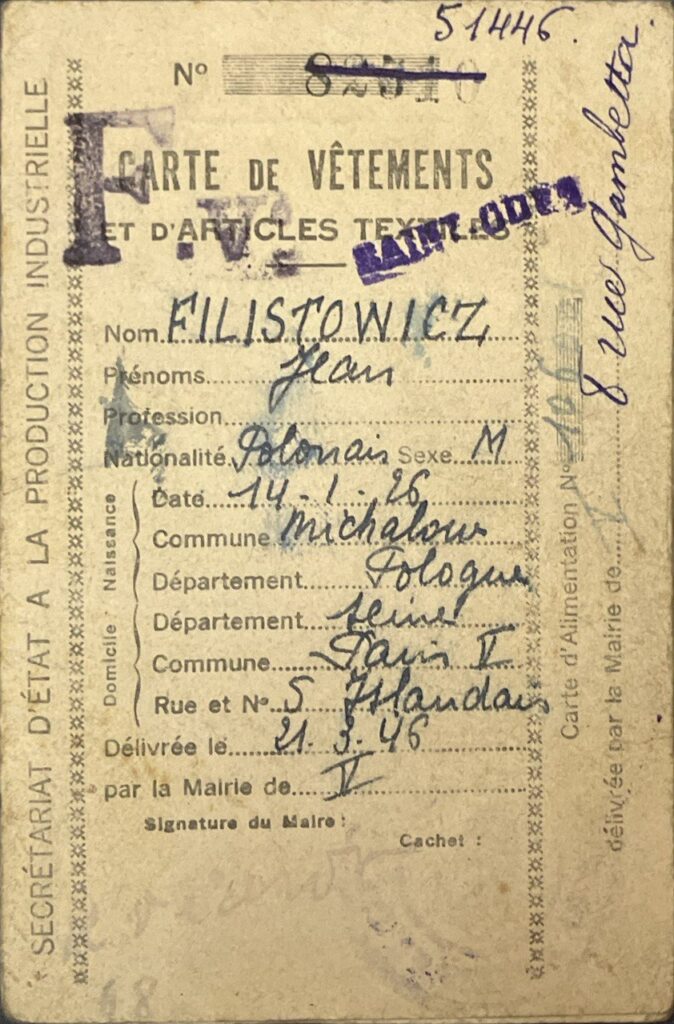 51446.
N° 82510
CARTE DE VÊTEMENTS
ET D'ARTICLES TEXTILES
F.V.
SAINT-OUEN
Nom FILISTOWICZ
Prénoms Jean
Profession
Nationalité Polonais Sexe M
Naissance
Date 14-1-26
Commune Michalow
Département Pologne
Domicile
Département Seine
Commune Paris V
Rue et N° 5 Irlandais
Délivrée le 21.3.46
par la Mairie de V
Signature du Maire :
Cachet :
SECRÉTARIAT D'ÉTAT A LA PRODUCTION INDUSTRIELLE
8 rue Gambetta.
Carte d'Alimentation N°
délivrée par la Mairie de V
48